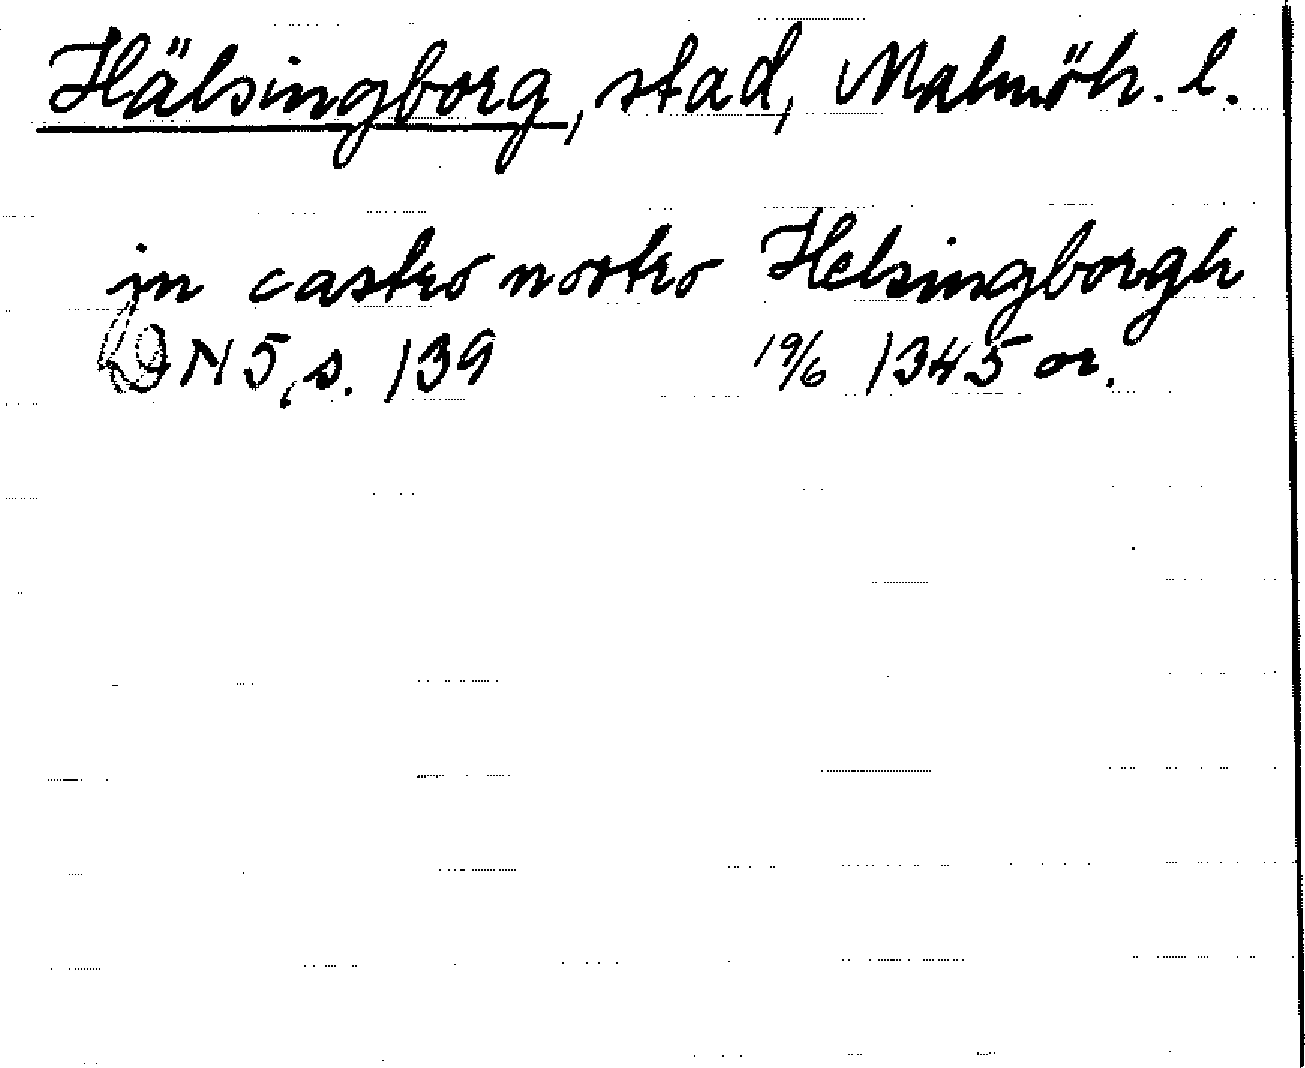 Hälsingborg, stad, Malmöh. l.
jn castro nostro Helsingborgh
DN 5, s. 139 19/6 1345 or.